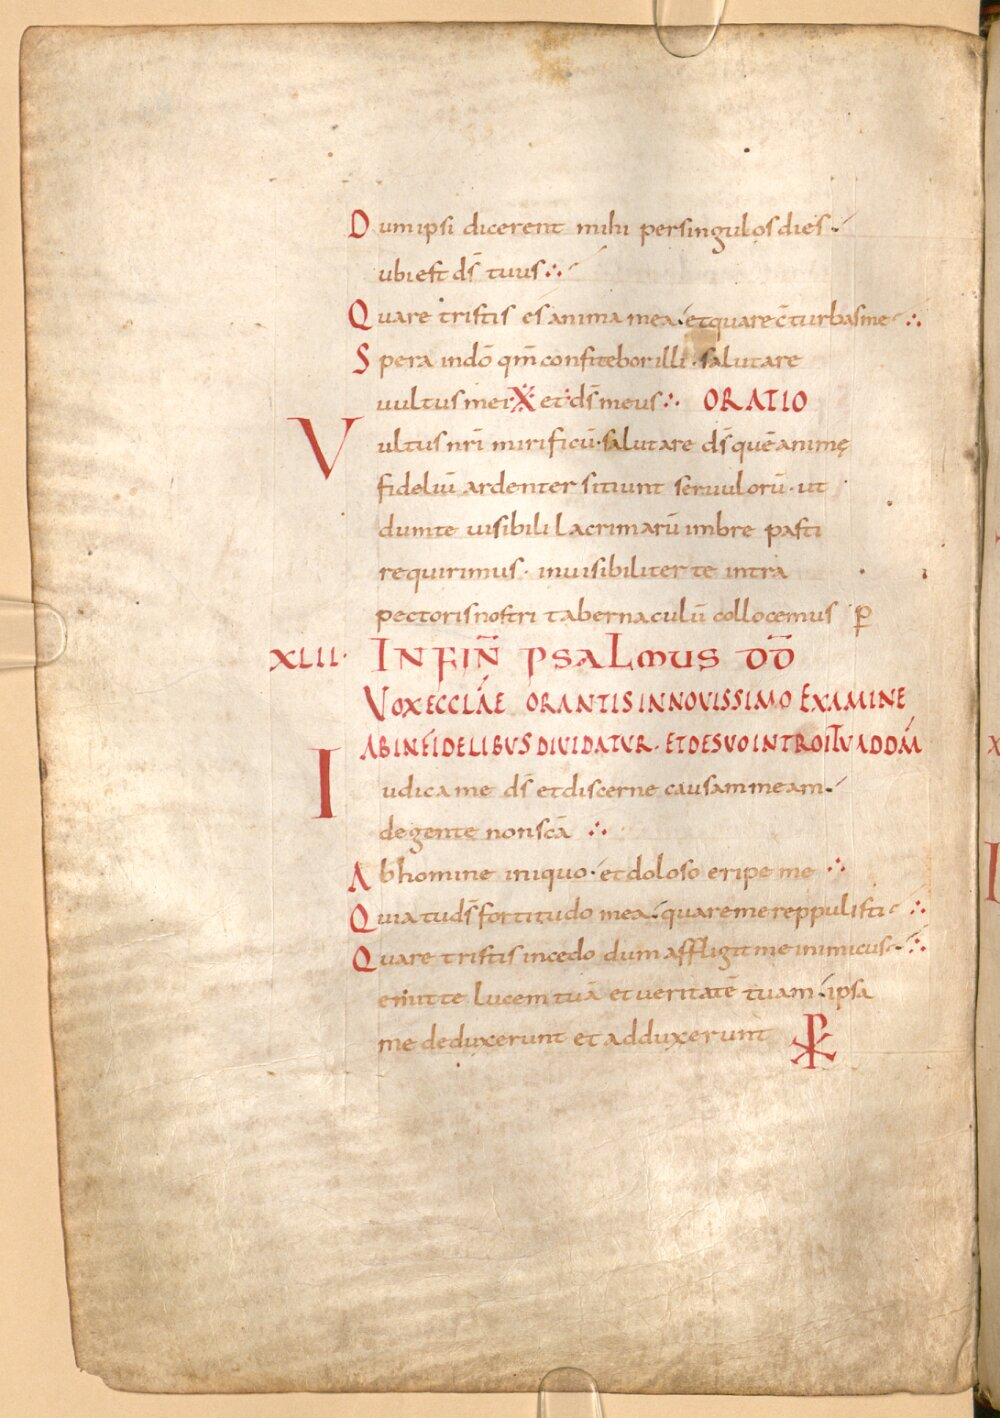 Dum ipsi dicerent mihi per singulos dies
ubi est d̄s tuus
Quare tristis es anima mea et quare c̄turbas me
Spera in dō qm̄ confitebor illi salutare
uultus mei ※ et d̄s meus ORATIO
Vultus nr̄i mirificū salutare d̄s quē animę
fideliū ardenter sitiunt seruulorū · ut
dum te uisibili lacrimarū imbre pasti
requirimus · inuisibiliter te intra
pectoris nostri tabernaculū collocemus ꝑ
XLII · IN FIN̄ PSALMUS DD̄
VOX ECCLĀE ORANTIS IN NOVISSIMO EXAMINE
AB INFIDELIBVS DIVIDATVR · ET DE SVO INTROITV AD DŌM
Iudica me d̄s et discerne causam meam
de gente non scā
Ab homine iniquo · et doloso eripe me
Quia tu d̄s fortitudo mea quare me reppulisti
Quare tristis incedo dum affligit me inimicus
emitte lucem tuā et ueritatē tuam ipsa
me deduxerunt et adduxerunt ☧